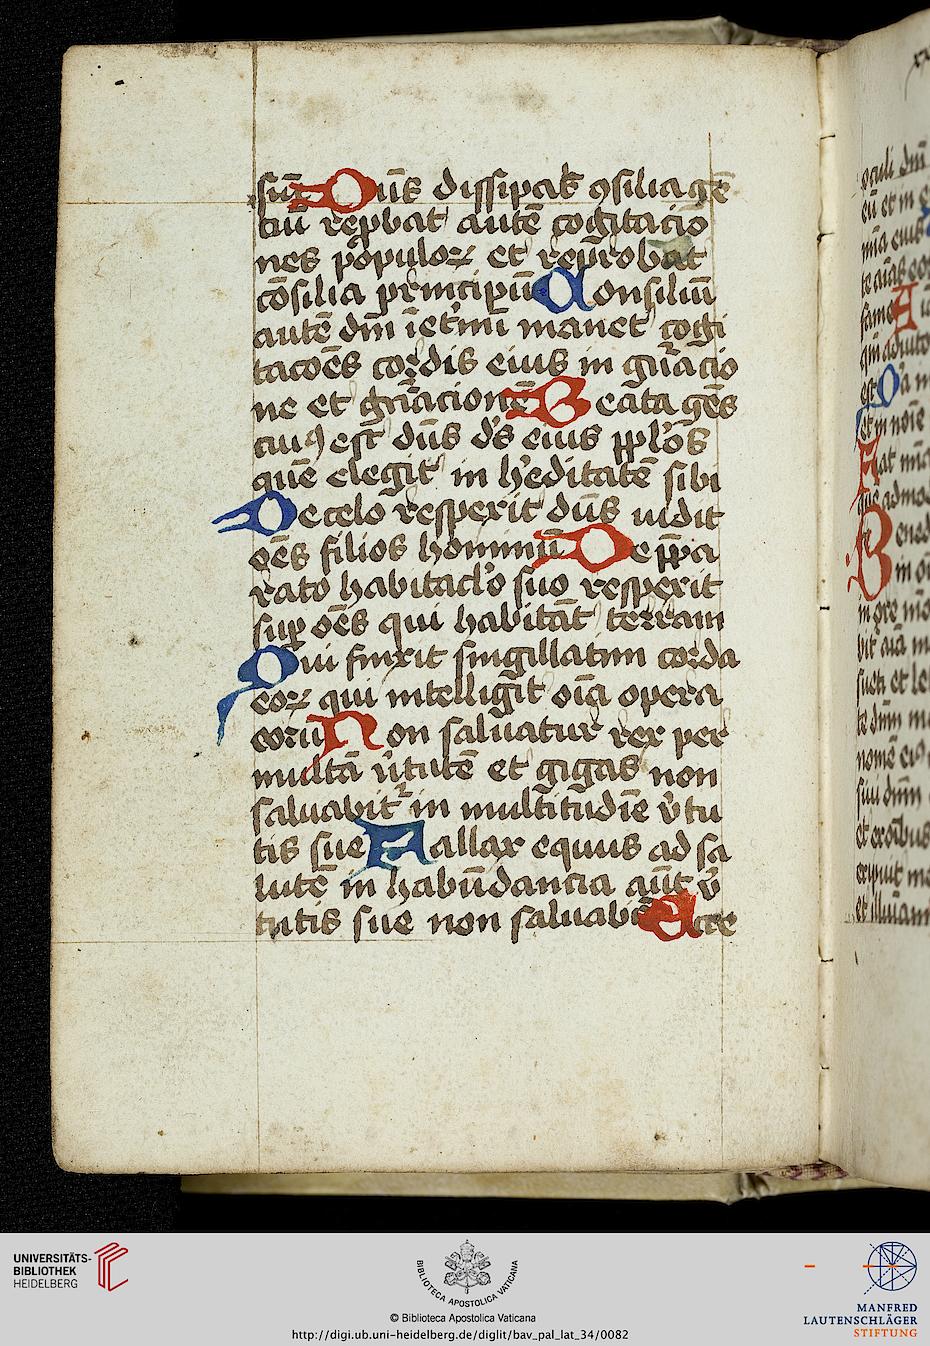 sūt Dn̄s dissipat ꝯsilia gē
tiū rep̱bat autē cogitacio
nes populoꝝ et reprobat
cōsilia principū Consiliū
autē dm̄ ī et̓nū manet cogi
tacōes cordis eius in gn̄acio
ne et gn̄acionē Beata gēs
cuiꝰ est dn̄s ds̄ eius ppl̓os
quē elegit in h̓editatē sibi
De celo respexit dn̄s vidit
oēs filios hominū De pp̱a
rato habitacl̓o suo respexit
sup oēs qui habitāt terram
Qui finxit singillatim corda
eoꝝ qui intelligit oīa opera
eorū Non saluatur rex per
multā v̓tutē et gigas non
saluabit̉ in multitudīe v̓tu
tis sue Fallax equus ad sa
lutē in habūdancia aūt v̓
tutis sue non saluabit̉ Ecce
UNIVERSITÄTS-
BIBLIOTHEK
HEIDELBERG
BIBLIOTECA APOSTOLICA VATICANA
© Biblioteca Apostolica Vaticana
http://digi.ub.uni-heidelberg.de/diglit/bav_pal_lat_34/0082
MANFRED
LAUTENSCHLÄGER
STIFTUNG